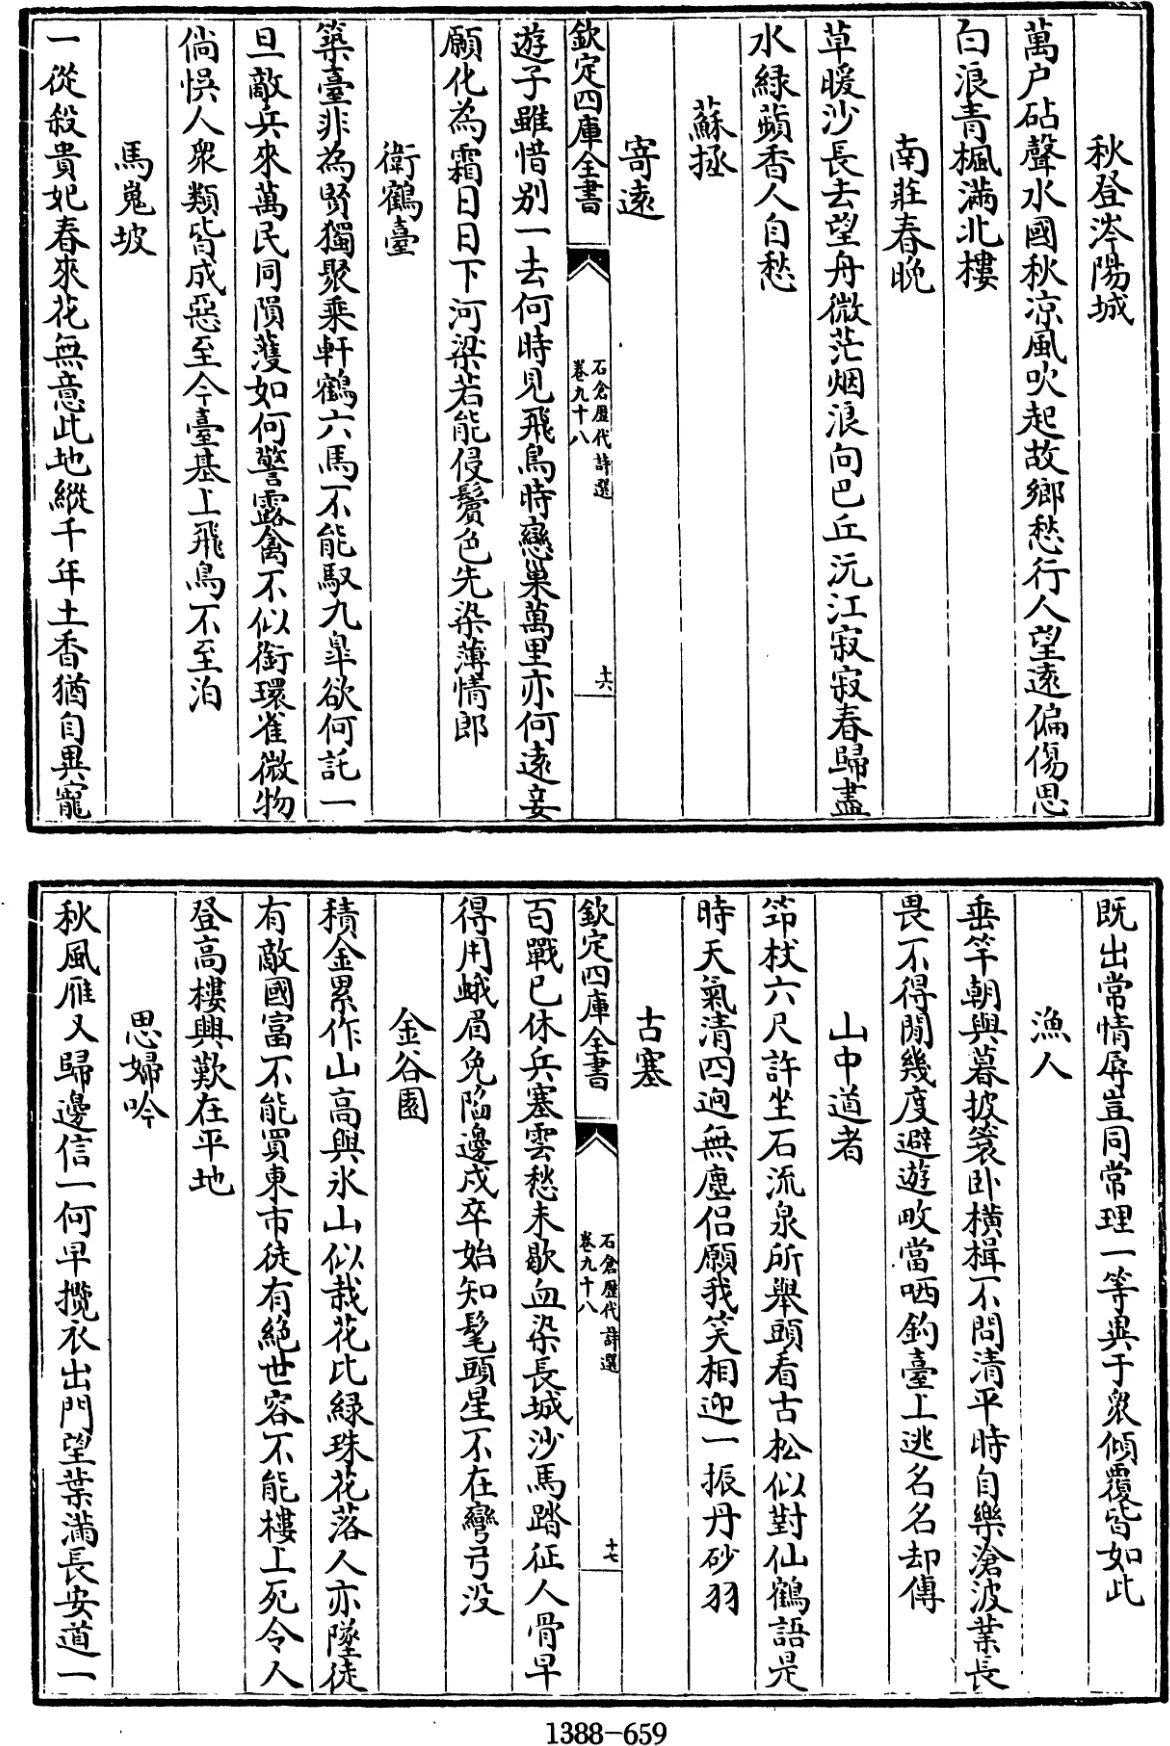 秋登涔陽城
萬户砧聲水國秋涼風吹起故鄉愁行人望遠偏傷思
白浪青楓滿北樓
南莊春晚
草暖沙長去望舟微茫烟浪向巴丘沅江寂寂春歸盡
水綠蘋香人自愁
蘇拯
寄遠
欽定四庫全書
石倉歷代詩選
卷九十八
十六
遊子雖惜別一去何時見飛鳥時戀巢萬里亦何遠妾
願化為霜日日下河梁若能侵鬢色先染薄情郎
衛鶴臺
築臺非為賢獨聚乘軒鶴六馬不能馭九臯欲何託一
旦敵兵來萬民同隕蒦如何警露禽不似銜環雀微物
倘悞人衆類皆成惡至今臺基上飛鳥不至泊
馬嵬坡
一從殺貴妃春來花無意此地縱千年土香猶自異寵
既出常情辱豈同常理一等異于衆傾覆皆如此
漁人
垂竿朝與暮披簑卧橫楫不問清平時自樂滄波業長
畏不得閒幾度避遊畋當哂釣臺上逃名名却傳
山中道者
笻杖六尺許坐石流泉所舉頭看古松似對仙鶴語是
時天氣清四迥無塵侣願我笑相迎一振丹砂羽
古塞
欽定四庫全書
石倉歷代詩選
卷九十八
十七
百戰已休兵塞雲愁未歇血染長城沙馬踏征人骨早
得用蛾眉免陷邊戍卒始知髦頭星不在彎弓没
金谷園
積金累作山高與氷山似栽花比綠珠花落人亦墜徒
有敵國富不能買東市徒有絶世容不能樓上死令人
登高樓興歎在平地
思婦吟
秋風雁又歸邊信一何早攬衣出門望葉滿長安道一
1388-659